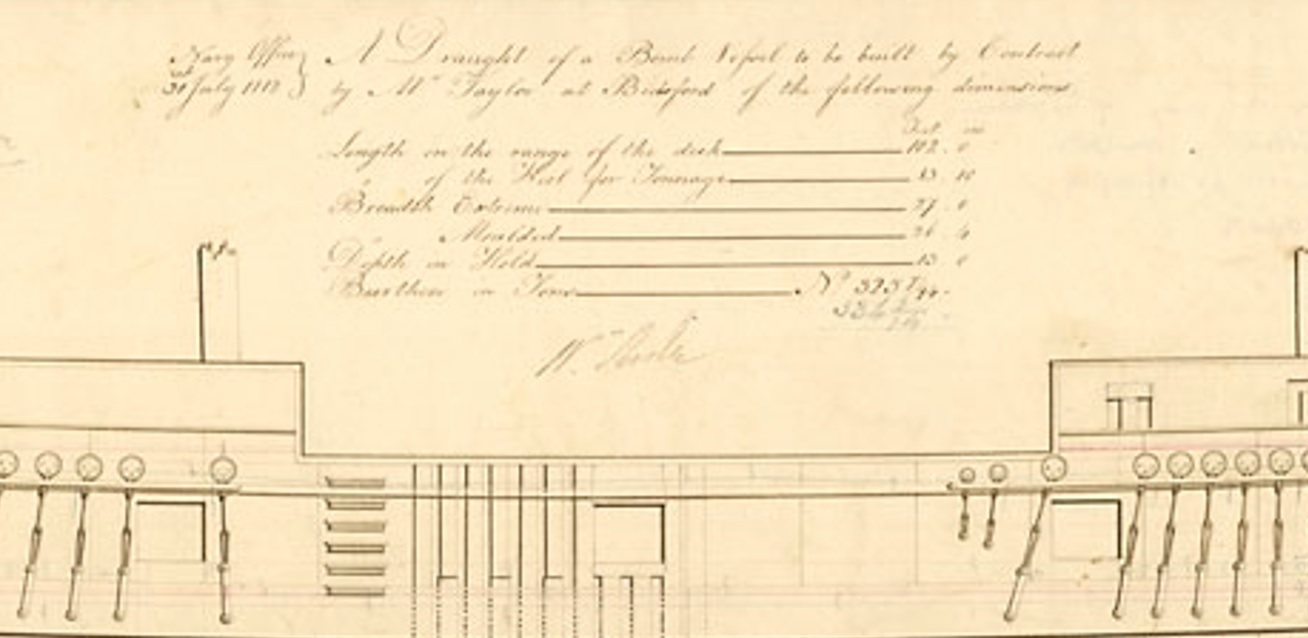 Navy Office
31st July 1812
A Draught of a Bomb Vessel to be built by Contract
by Mr Taylor at Bideford of the following dimensions
Feet in
Length on the range of the deck 102 . 0
" of the Keel for Tonnage 83 . 10
Breadth Extreme 27 . 0
" Moulded 26 . 4
Depth in Hold 13 0
Burthen in Tons No 325